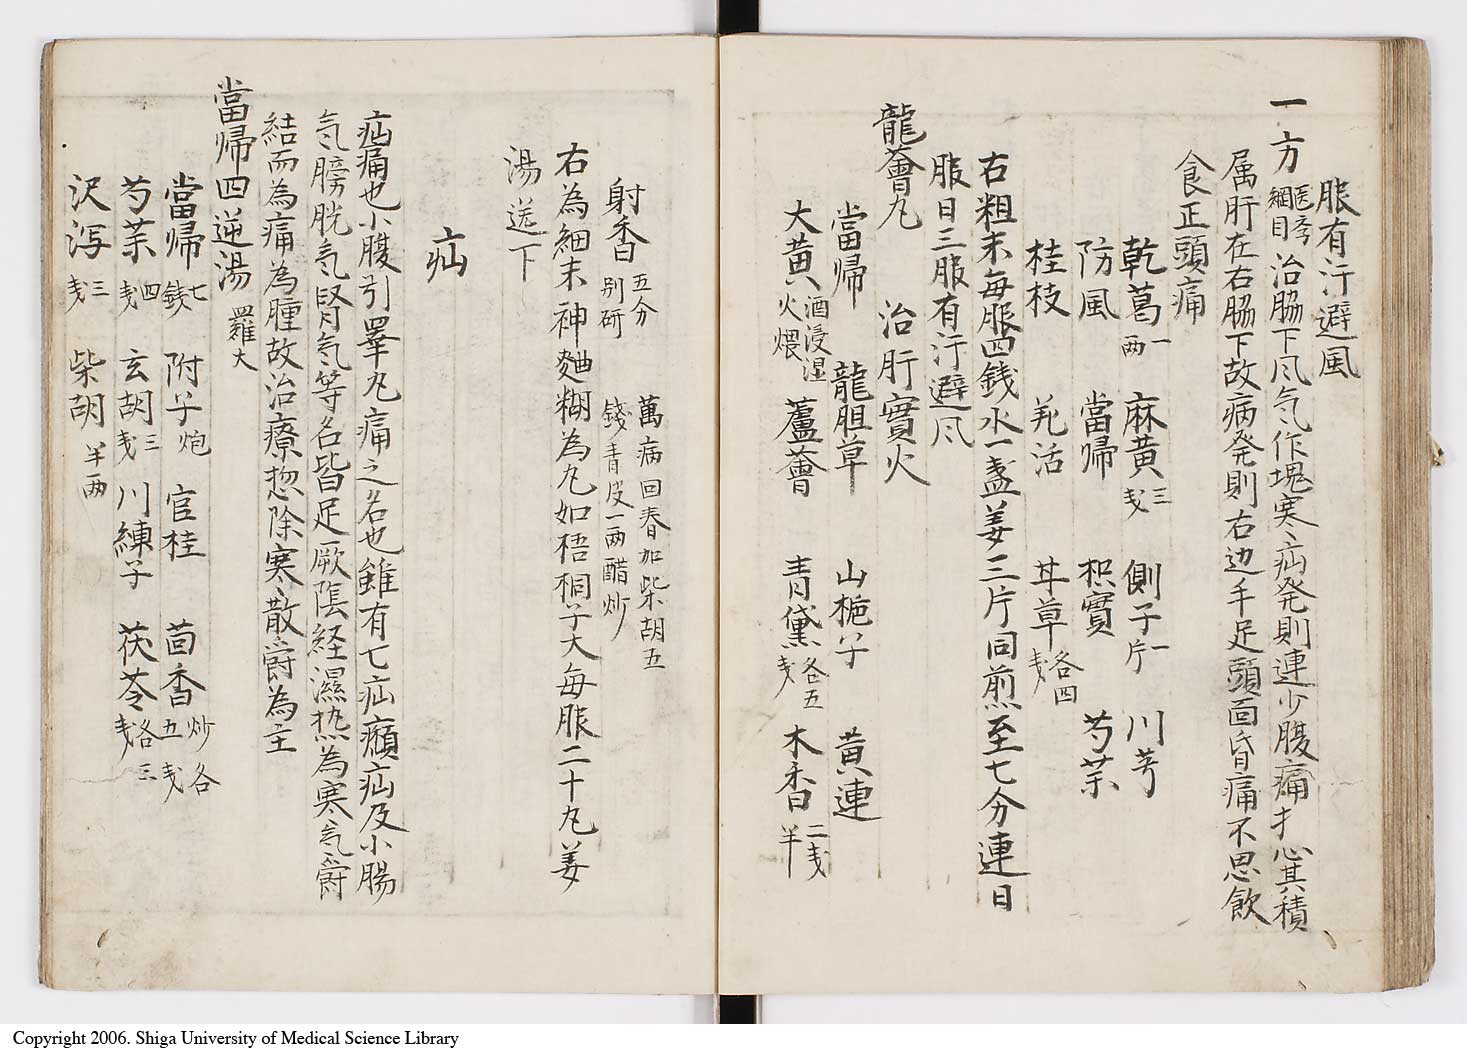 服有汗避風
一方 医学綱目 治脇下风气作塊寒疝発則連少腹痛扌心其積
属肝在右脇下故病発則右边手足頭面昏痛不思飲
食正頭痛
乾葛一両 麻黄三戔 側子一片 川芎
防風 當帰 枳實 芍薬
桂枝 羌活 甘草各四戔
右粗末毎服四銭水一盞姜三片同煎至七分連日
服日三服有汗避风
龍薈丸 治肝實火
當帰 龍胆草 山梔子 黄連
大黄酒浸湿火煨 蘆薈 青黛各五戔 木香二戔半
射香五分別研 萬病回春加柴胡五錢青皮一両醋炒
右為細末神麯糊為丸如梧桐子大毎服二十丸姜
湯送下
疝
疝痛也小腹引睪丸痛之名也雖有七疝㿗疝及小腸
气膀胱气腎气等名皆足厥陰経濕热為寒气欝
結而為痛為腫故治療惣除寒散欝為主
當帰四逆湯 羅大
當帰七銭 附子炮 官桂 茴香炒各五戔
芍薬四戔 玄胡三戔 川練子 茯苓各三戔
沢泻三戔 柴胡半両
Copyright 2006. Shiga University of Medical Science Library